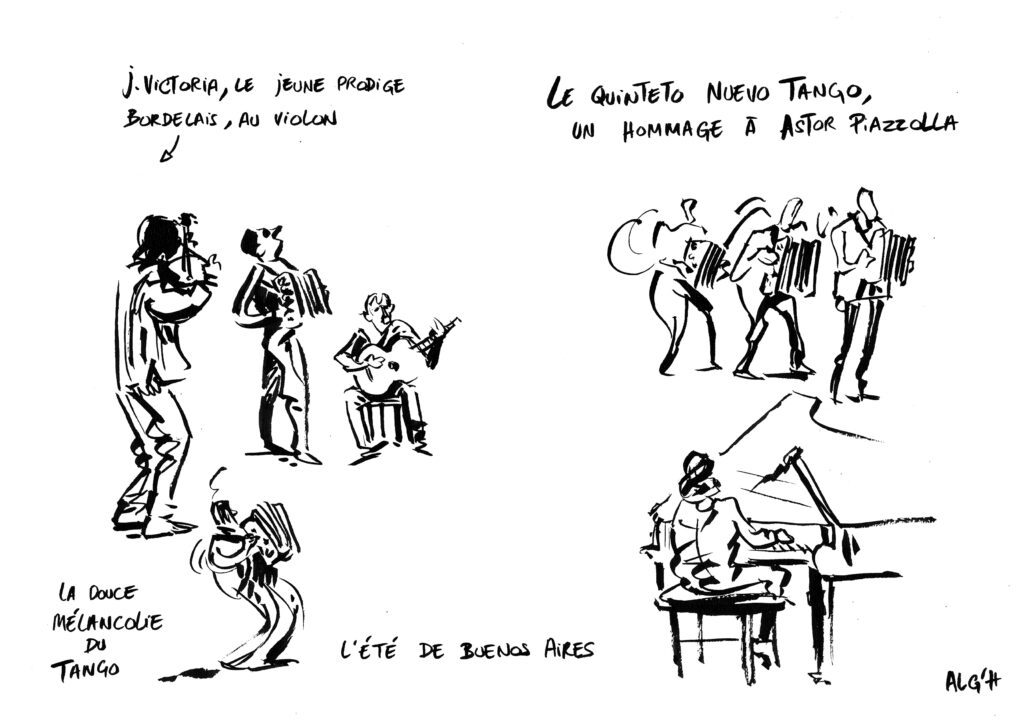 J. VICTORIA, LE JEUNE PRODIGE
BORDELAIS, AU VIOLON
LE QUINTETO NUEVO TANGO,
UN HOMMAGE À ASTOR PIAZZOLLA
LA DOUCE
MÉLANCOLIE
DU
TANGO
L'ÉTÉ DE BUENOS AIRES
ALG'H